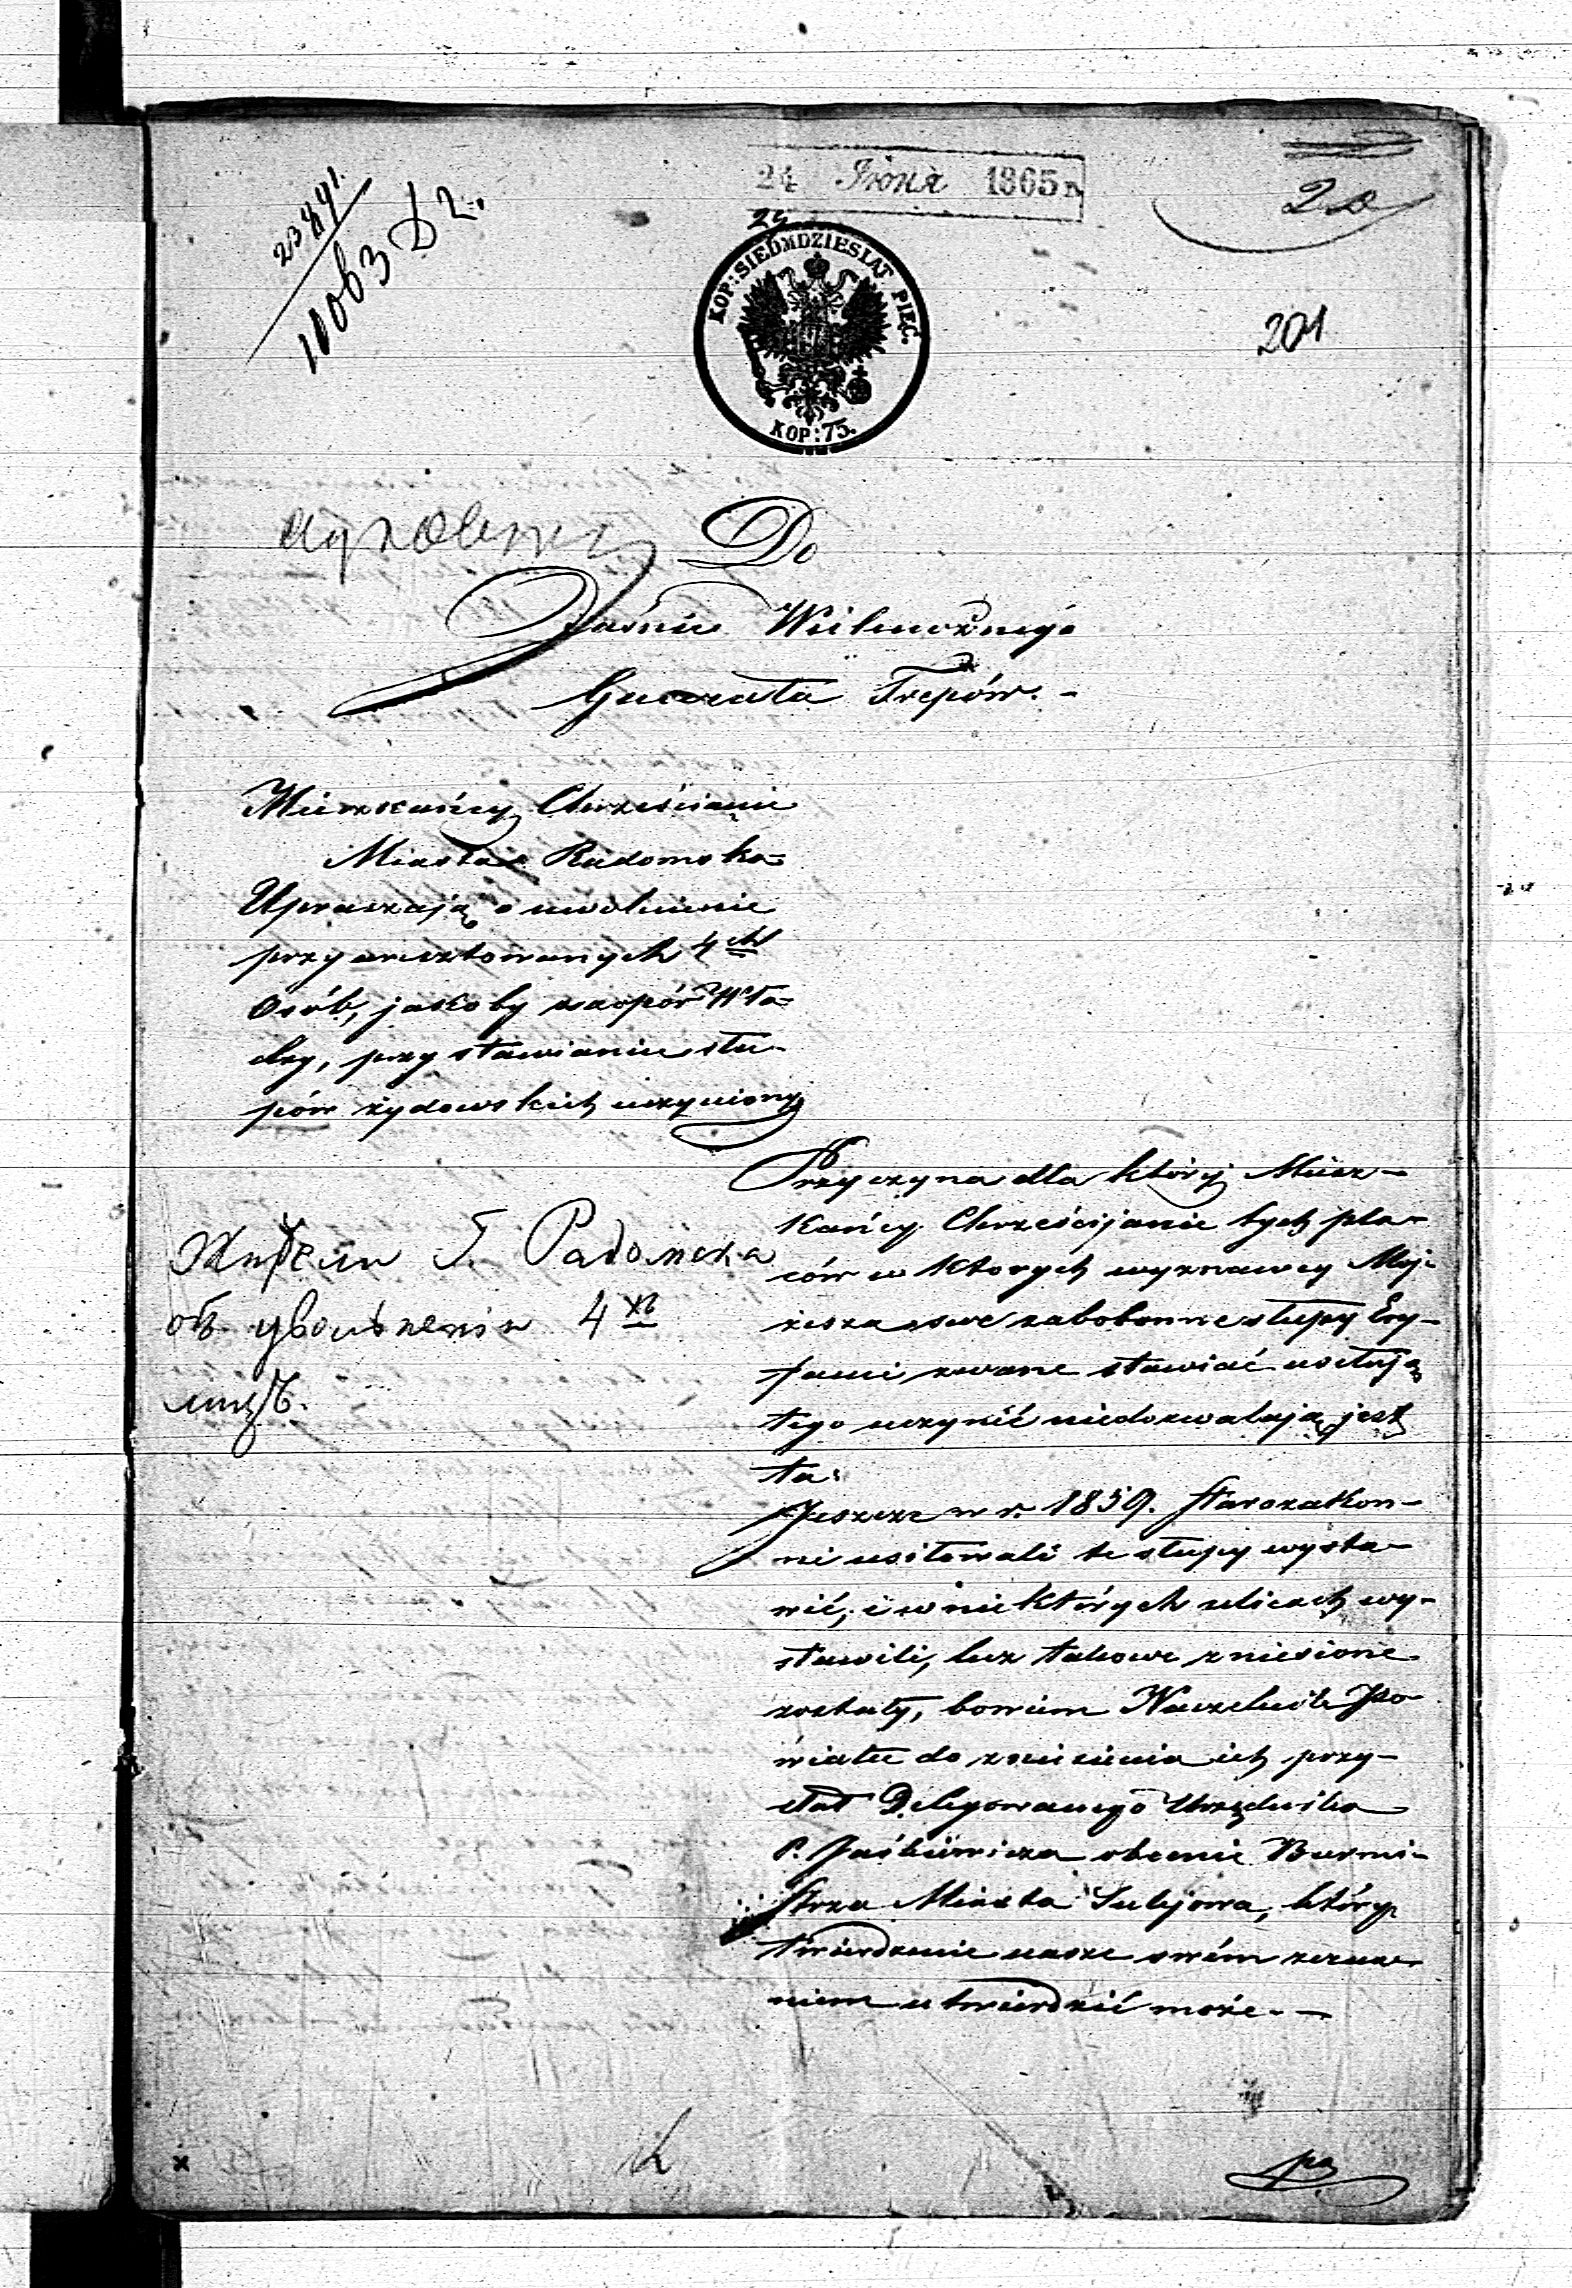 24 Іюня 1865 г.
24
20
201
23891.
11063 D2.
KOP: SIEDMDZIESIĄT PIĘĆ.
KOP: 75.
Do
Jaśnie Wielmożnego
Generała Trepów. -
Mieszkańcy Chrześcianie
Miasta Radomska =
Upraszają o uwolnienie
przyaresztowanych 4ch
Osób, jakoby za opór Wła=
dzy, przy stawianiu słu-
pów żydowskich uczyniony
Жители Г. Радомска
объ увольненіи 4хъ
лицъ.
Przyczyna dla której Miesz-
kańcy Chrześcijanie tych pla-
ców w których wyznawcy Moj-
żesza swe zabobonne słupy Ery-
fami zwane stawiać usiłują
tego uczynić niedozwalają, jest
ta:
Jeszcze w r. 1859. Starozakon-
ni usiłowali te słupy wysta-
wić, i w niektórych ulicach wy-
stawili, lecz takowe zniesione
zostały, bowiem Naczelnik Po-
wiatu do zniesienia ich przy-
słał Delegowanego Urzędnika
P. Jaśkiewicza obecnie Burmi-
strza Miasta Sulejowa, który
twierdzenie nasze swém zezna-
niem utwierdzić może. -